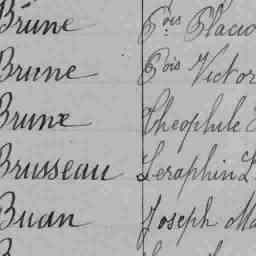 Brune Fois Placid
Brune Fois Victor
Brune Theophile
Brusseau Seraphin L
Buan Joseph Ma